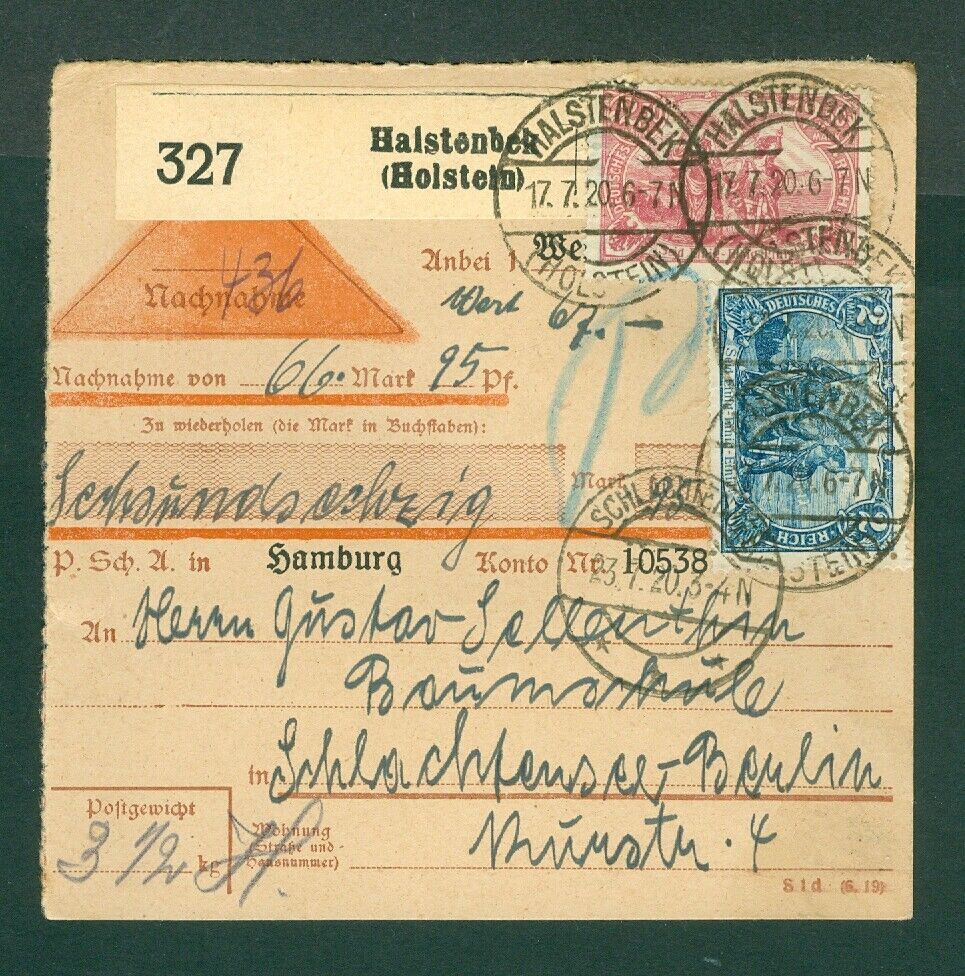 327
Halstenbek
(Holstein)
HALSTENBEK
17.7.20.6-7N
(HOLSTEIN)
HALSTENBEK
17.7.20.6- N
436
Nachnahme
Anbei 1
We
Wert 67.—
Nachnahme von 66. Mark 95 Pf.
Zu wiederholen (die Mark in Buchstaben):
Sechsundsechzig Mark
P. Sch. A. in Hamburg Konto Nr. 10538
DEUTSCHES
REICH
2
2
6-7N
SCHLACHTENSEE
23.7.20.3-4N
An Herrn Gustav Sellenthin
Baumschule
in Schlachtensee-Berlin
Postgewicht
3 1/2 kg
Wohnung
(Straße und
Hausnummer)
4
S 1 d (6. 19)